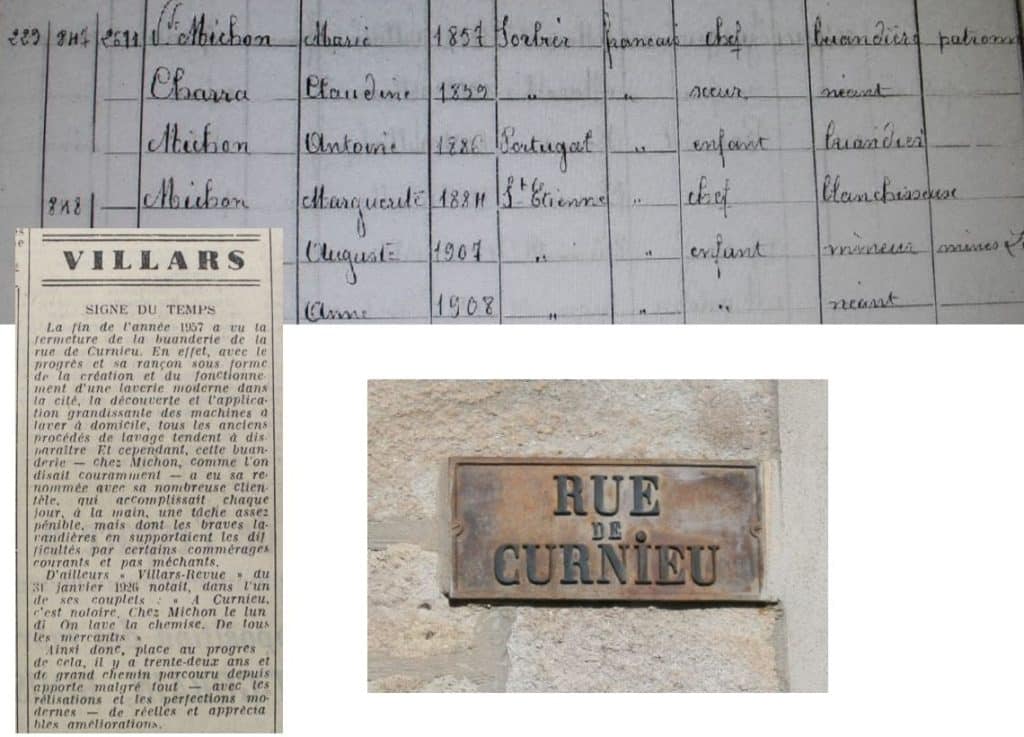 229 847 2611 Vve Michon Marie 1857 Sorbier français chef buandière patronne
Charra Claudine 1859 " " sœur néant
Michon Antoine 1886 Portugal " enfant buandier
848 Michon Marguerite 1884 St Etienne " chef blanchisseuse
Auguste 1907 " " enfant mineur mines
Anne 1908 " " " néant
VILLARS
SIGNE DU TEMPS
La fin de l'année 1957 a vu la
fermeture de la buanderie de la
rue de Curnieu. En effet, avec le
progrès et sa rançon sous forme
de la création et du fonctionne-
ment d'une laverie moderne dans
la cité, la découverte et l'applica-
tion grandissante des machines à
laver à domicile, tous les anciens
procédés de lavage tendent à dis-
paraître Et cependant, cette buan-
derie — chez Michon, comme l'on
disait couramment — a eu sa re-
nommée avec sa nombreuse clien-
tèle, qui accomplissait chaque
jour, à la main, une tâche assez
pénible, mais dont les braves la-
vandières en supportaient les dif
ficultés par certains commérages
courants et pas méchants.
D'ailleurs « Villars-Revue » du
31 janvier 1926 notait, dans l'un
de ses couplets : « A Curnieu,
c'est notoire. Chez Michon le lun
di On lave la chemise. De tous
les mercantis »
Ainsi donc, place au progrès
de cela, il y a trente-deux ans et
de grand chemin parcouru depuis
apporte malgré tout — avec les
rélisations et les perfections mo-
dernes — de réelles et apprécia
bles améliorations.
RUE
DE
CURNIEU